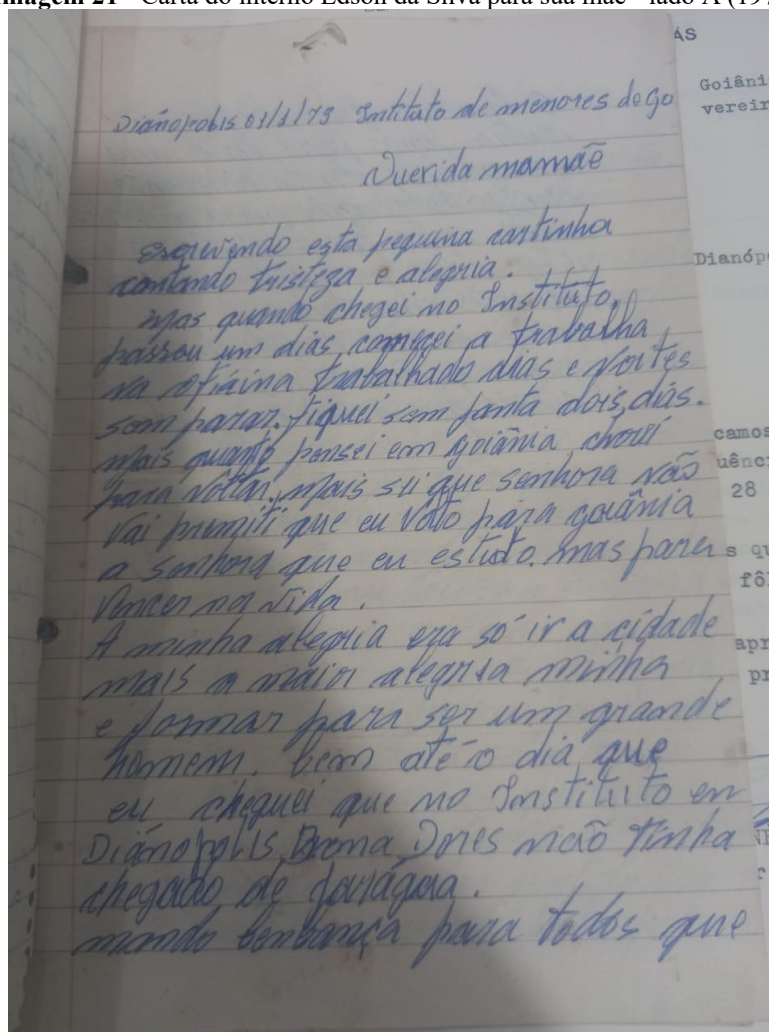 Imagem 21 - Carta do interno Edson da Silva para sua mãe - lado A (197
ÁS
Goiâni
vereir
Dianópolis 01/1/73 Intituto de menores de Go
Querida mamãe
escrevendo esta pequina cartinha
contando tristeza e alegria.
Dianópo
mas quando chegei no Instituto,
passou um dias, começei a trabalha
na oficina trabalhado dias e noites
sem parar. fiquei sem janta dois dias.
mais quanto pensei em goiânia, chorei
camos
para voltar, mais sei que senhora não
uênc
28
vai primiti que eu volto para goiânia
a senhora que eu estudo. mas para
s qu
fôl
vencer na vida.
A minha alegria era só ir a cidade
apr
mais a maior alegria minha
pr
e formar para ser um grande
homem. bem até o dia que
eu cheguei que no Instituto en
Dianopolis, Dores não tinha
chegado de
mando para todos que